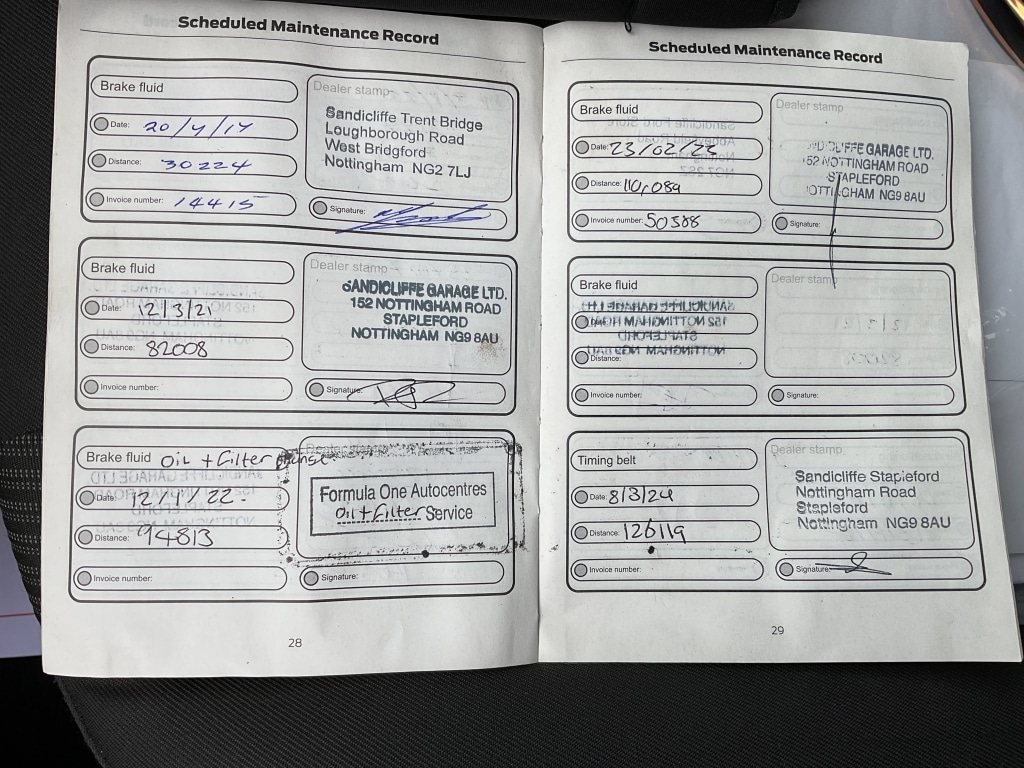 Scheduled Maintenance Record
Brake fluid
Date: 20/4/17
Distance: 30224
Invoice number: 14415
Dealer stamp
Sandicliffe Trent Bridge
Loughborough Road
West Bridgford
Nottingham NG2 7LJ
Signature:
Brake fluid
Date: 12/3/21
Distance: 82008
Invoice number:
Dealer stamp
SANDICLIFFE GARAGE LTD.
152 NOTTINGHAM ROAD
STAPLEFORD
NOTTINGHAM NG9 8AU
Signature:
Brake fluid Oil + Filter
Date: 12/1/22
Distance: 94813
Invoice number:
Dealer stamp
Formula One Autocentres
Oil + Filter Service
Signature:
28
Scheduled Maintenance Record
Brake fluid
Date: 23/02/23
Distance: 110,089
Invoice number: 50588
Dealer stamp
SANDICLIFFE GARAGE LTD.
152 NOTTINGHAM ROAD
STAPLEFORD
NOTTINGHAM NG9 8AU
Signature:
Brake fluid
Date:
Distance:
Invoice number:
Dealer stamp
Signature:
Timing belt
Date: 8/3/24
Distance: 126119
Invoice number:
Dealer stamp
Sandicliffe Stapleford
Nottingham Road
Stapleford
Nottingham NG9 8AU
Signature:
29